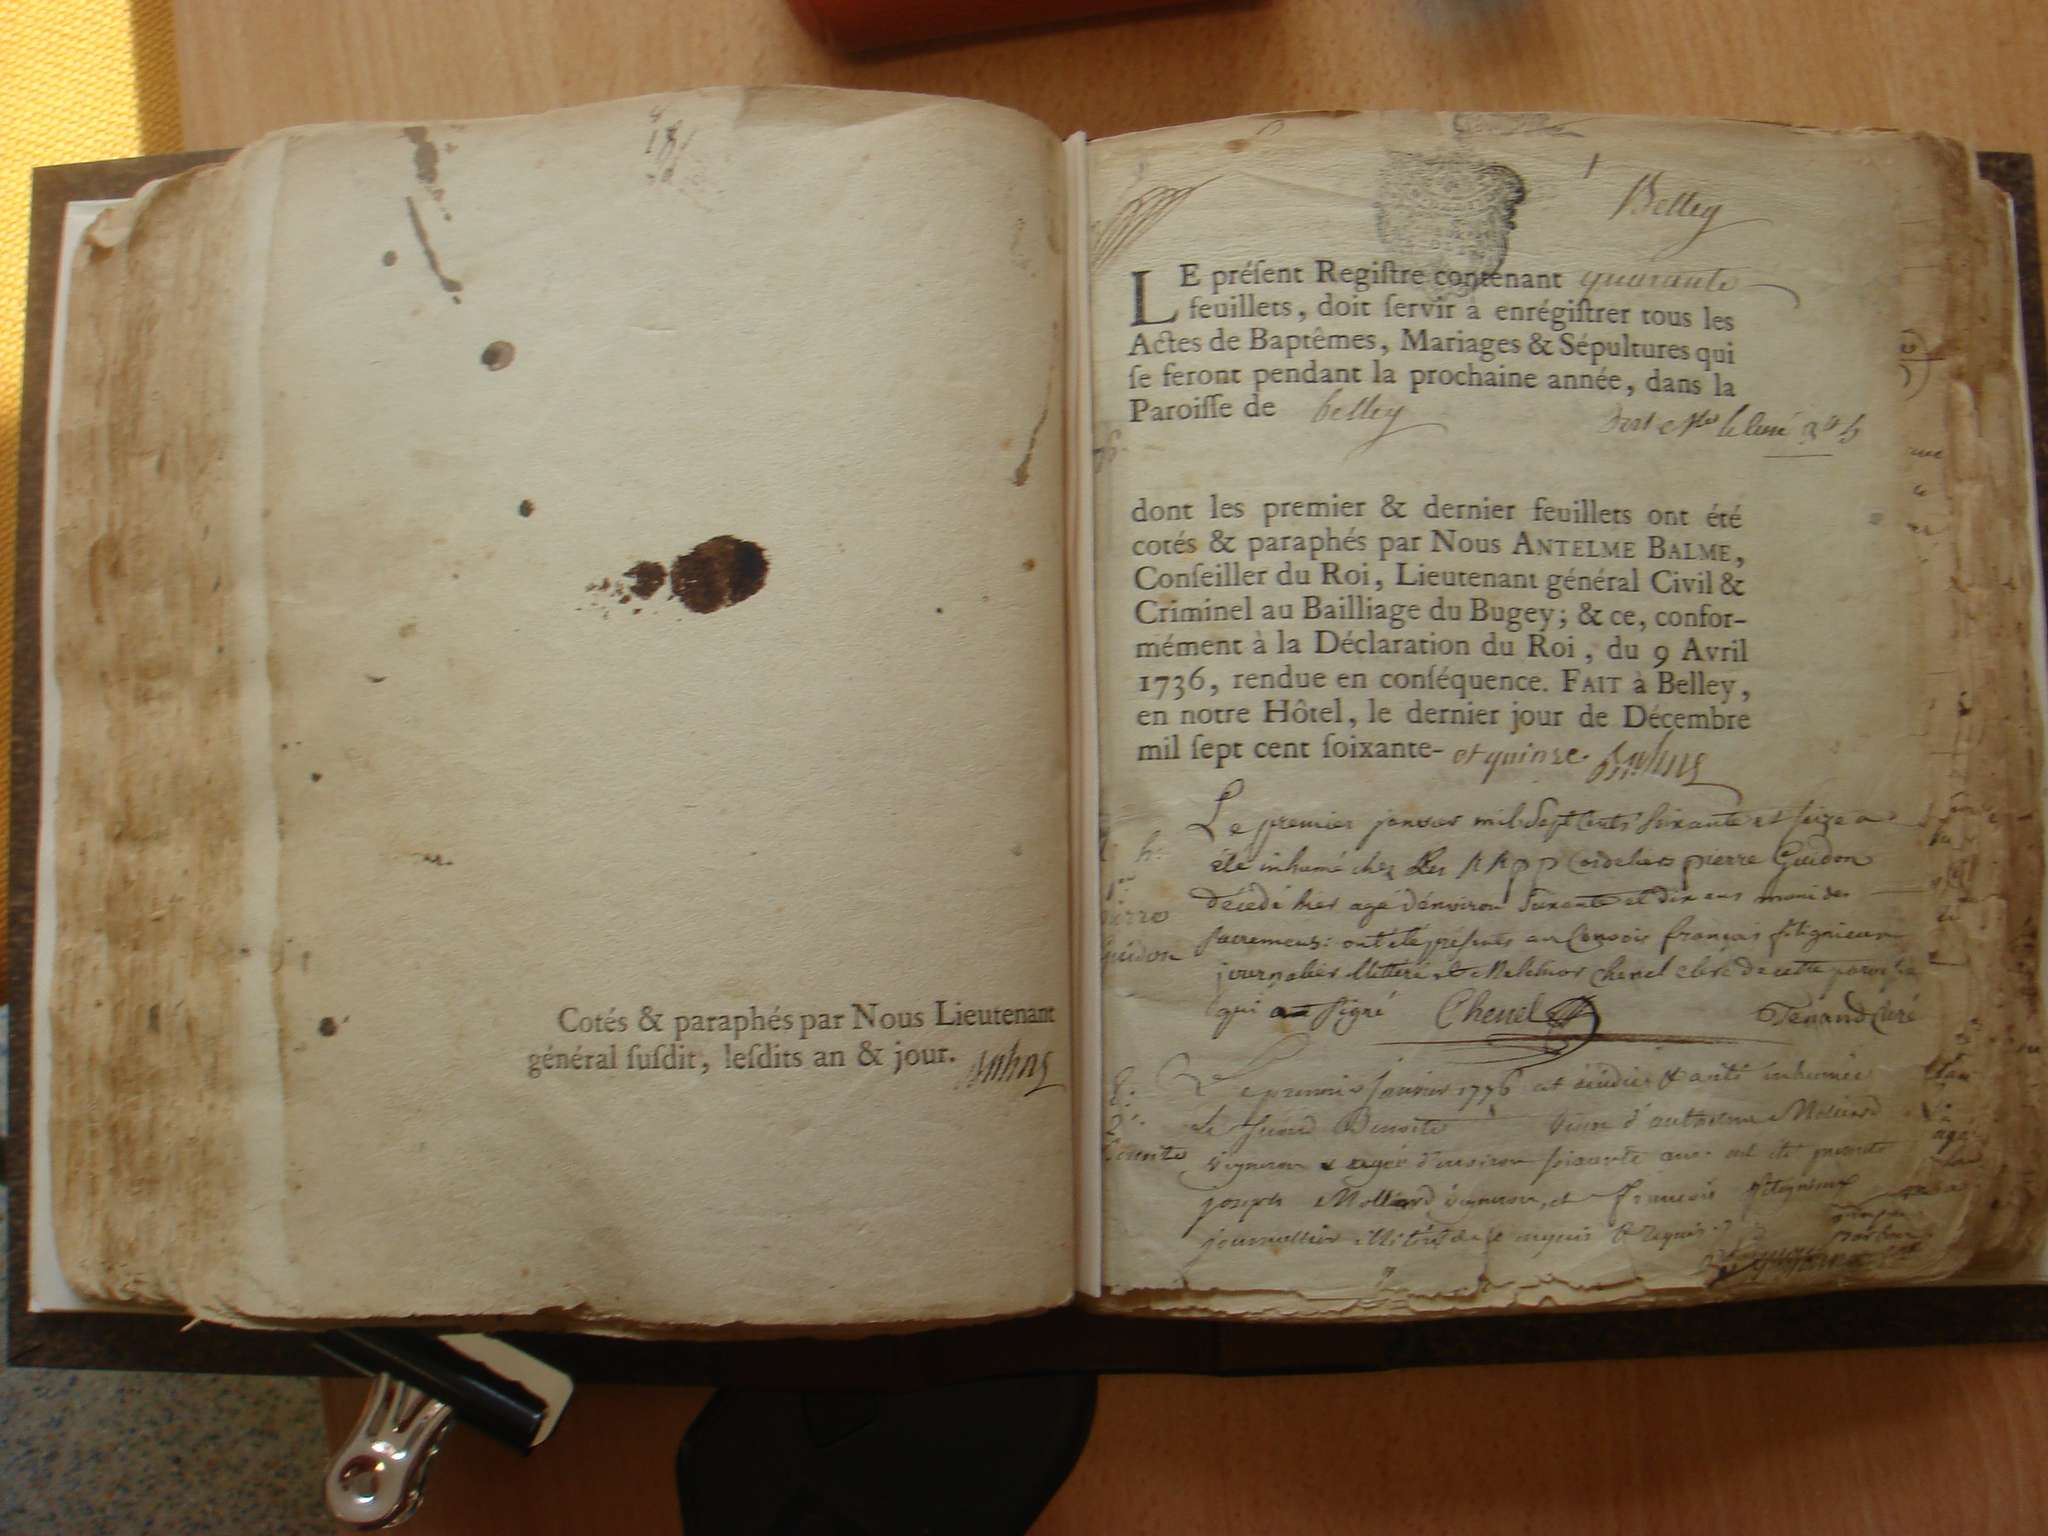 Cotés & paraphés par Nous Lieutenant
général ſuſdit, leſdits an & jour.
Belley
LE préſent Regiſtre contenant quarante
feuillets, doit ſervir à enrégiſtrer tous les
Actes de Baptêmes, Mariages & Sépultures qui
ſe feront pendant la prochaine année, dans la
Paroiſſe de belley
dont les premier & dernier feuillets ont été
cotés & paraphés par Nous ANTELME BALME,
Conſeiller du Roi, Lieutenant général Civil &
Criminel au Bailliage du Bugey; & ce, confor-
mément à la Déclaration du Roi, du 9 Avril
1736, rendue en conſéquence. FAIT à Belley,
en notre Hôtel, le dernier jour de Décembre
mil ſept cent ſoixante- et quinze.
Le premier janvier mil sept cents soixante et seize a
été inhumé chez Les RRPP Cordeliers pierre Guidon
décédé hier agé d'environ soixante et dix ans muni des
sacremens: ont été présents au convois françois
journalier illitéré et Melchior Chenel clerc de cette paroisse
qui a signé Chenel Tenand Curé
Le premier janvier 1776 est décédée & a été inhumée
le second Benoite veuve d'anthelme Molliard
vigneron agée d'environ soixante ans ont été présents
joseph Molliard vigneron, et françois
journallier illitéré de ce enquis & requis